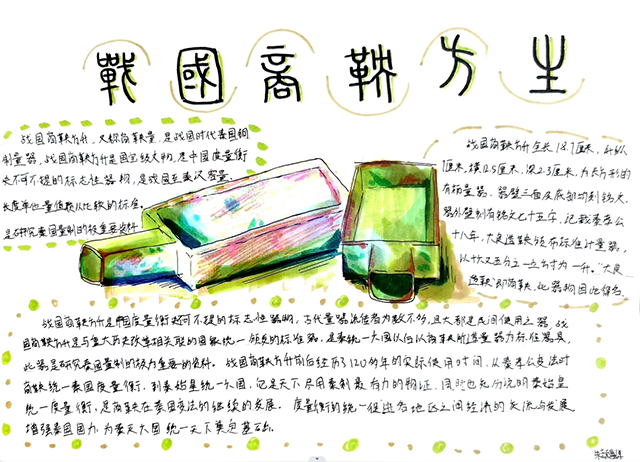 戰國商鞅方升
战国商鞅方升，又称商鞅量，是战国时代秦国铜
制量器，战国商鞅方升是国宝级文物，是中国度量衡
史不可不提的标志性器物，是战国至秦汉容量、
长度单位量值赖以比较的标准。
是研究秦国量制的极重要资料
战国商鞅方升全长18.7厘米，
7厘米，横12.5厘米，深2.3厘米，为长方形的
有柄量器。器壁三面及底部均刻铭文。
器外壁刻有铭文七十五字，记载秦孝公
十八年，大良造鞅颁布标准计量器，
以十六又五分之一立方寸为一升。"大良
造鞅"即商鞅，此器物因此得名。
战国商鞅方升是中国度量衡史不可不提的标志性器物，古代量器流传者为数不多，且大都是民间使用之器，战
国商鞅方升是与重大历史改革相关联的国家统一颁发的标准器，是秦统一六国以后仍以商鞅所造量器为标准器具，
此器是研究秦国量制的极为重要的资料。战国商鞅方升前后经历了120多年的实际使用时间，从秦孝公变法时
商鞅统一秦国度量衡，到秦始皇统一六国，它是天下尽用秦制最有力的物证，同时也充分说明秦始皇
统一度量衡，是商鞅在秦国变法的继续的发展。度量衡的统一促进各地区之间经济的交流与发展，
增强秦国国力，为秦灭六国统一天下奠定基础。